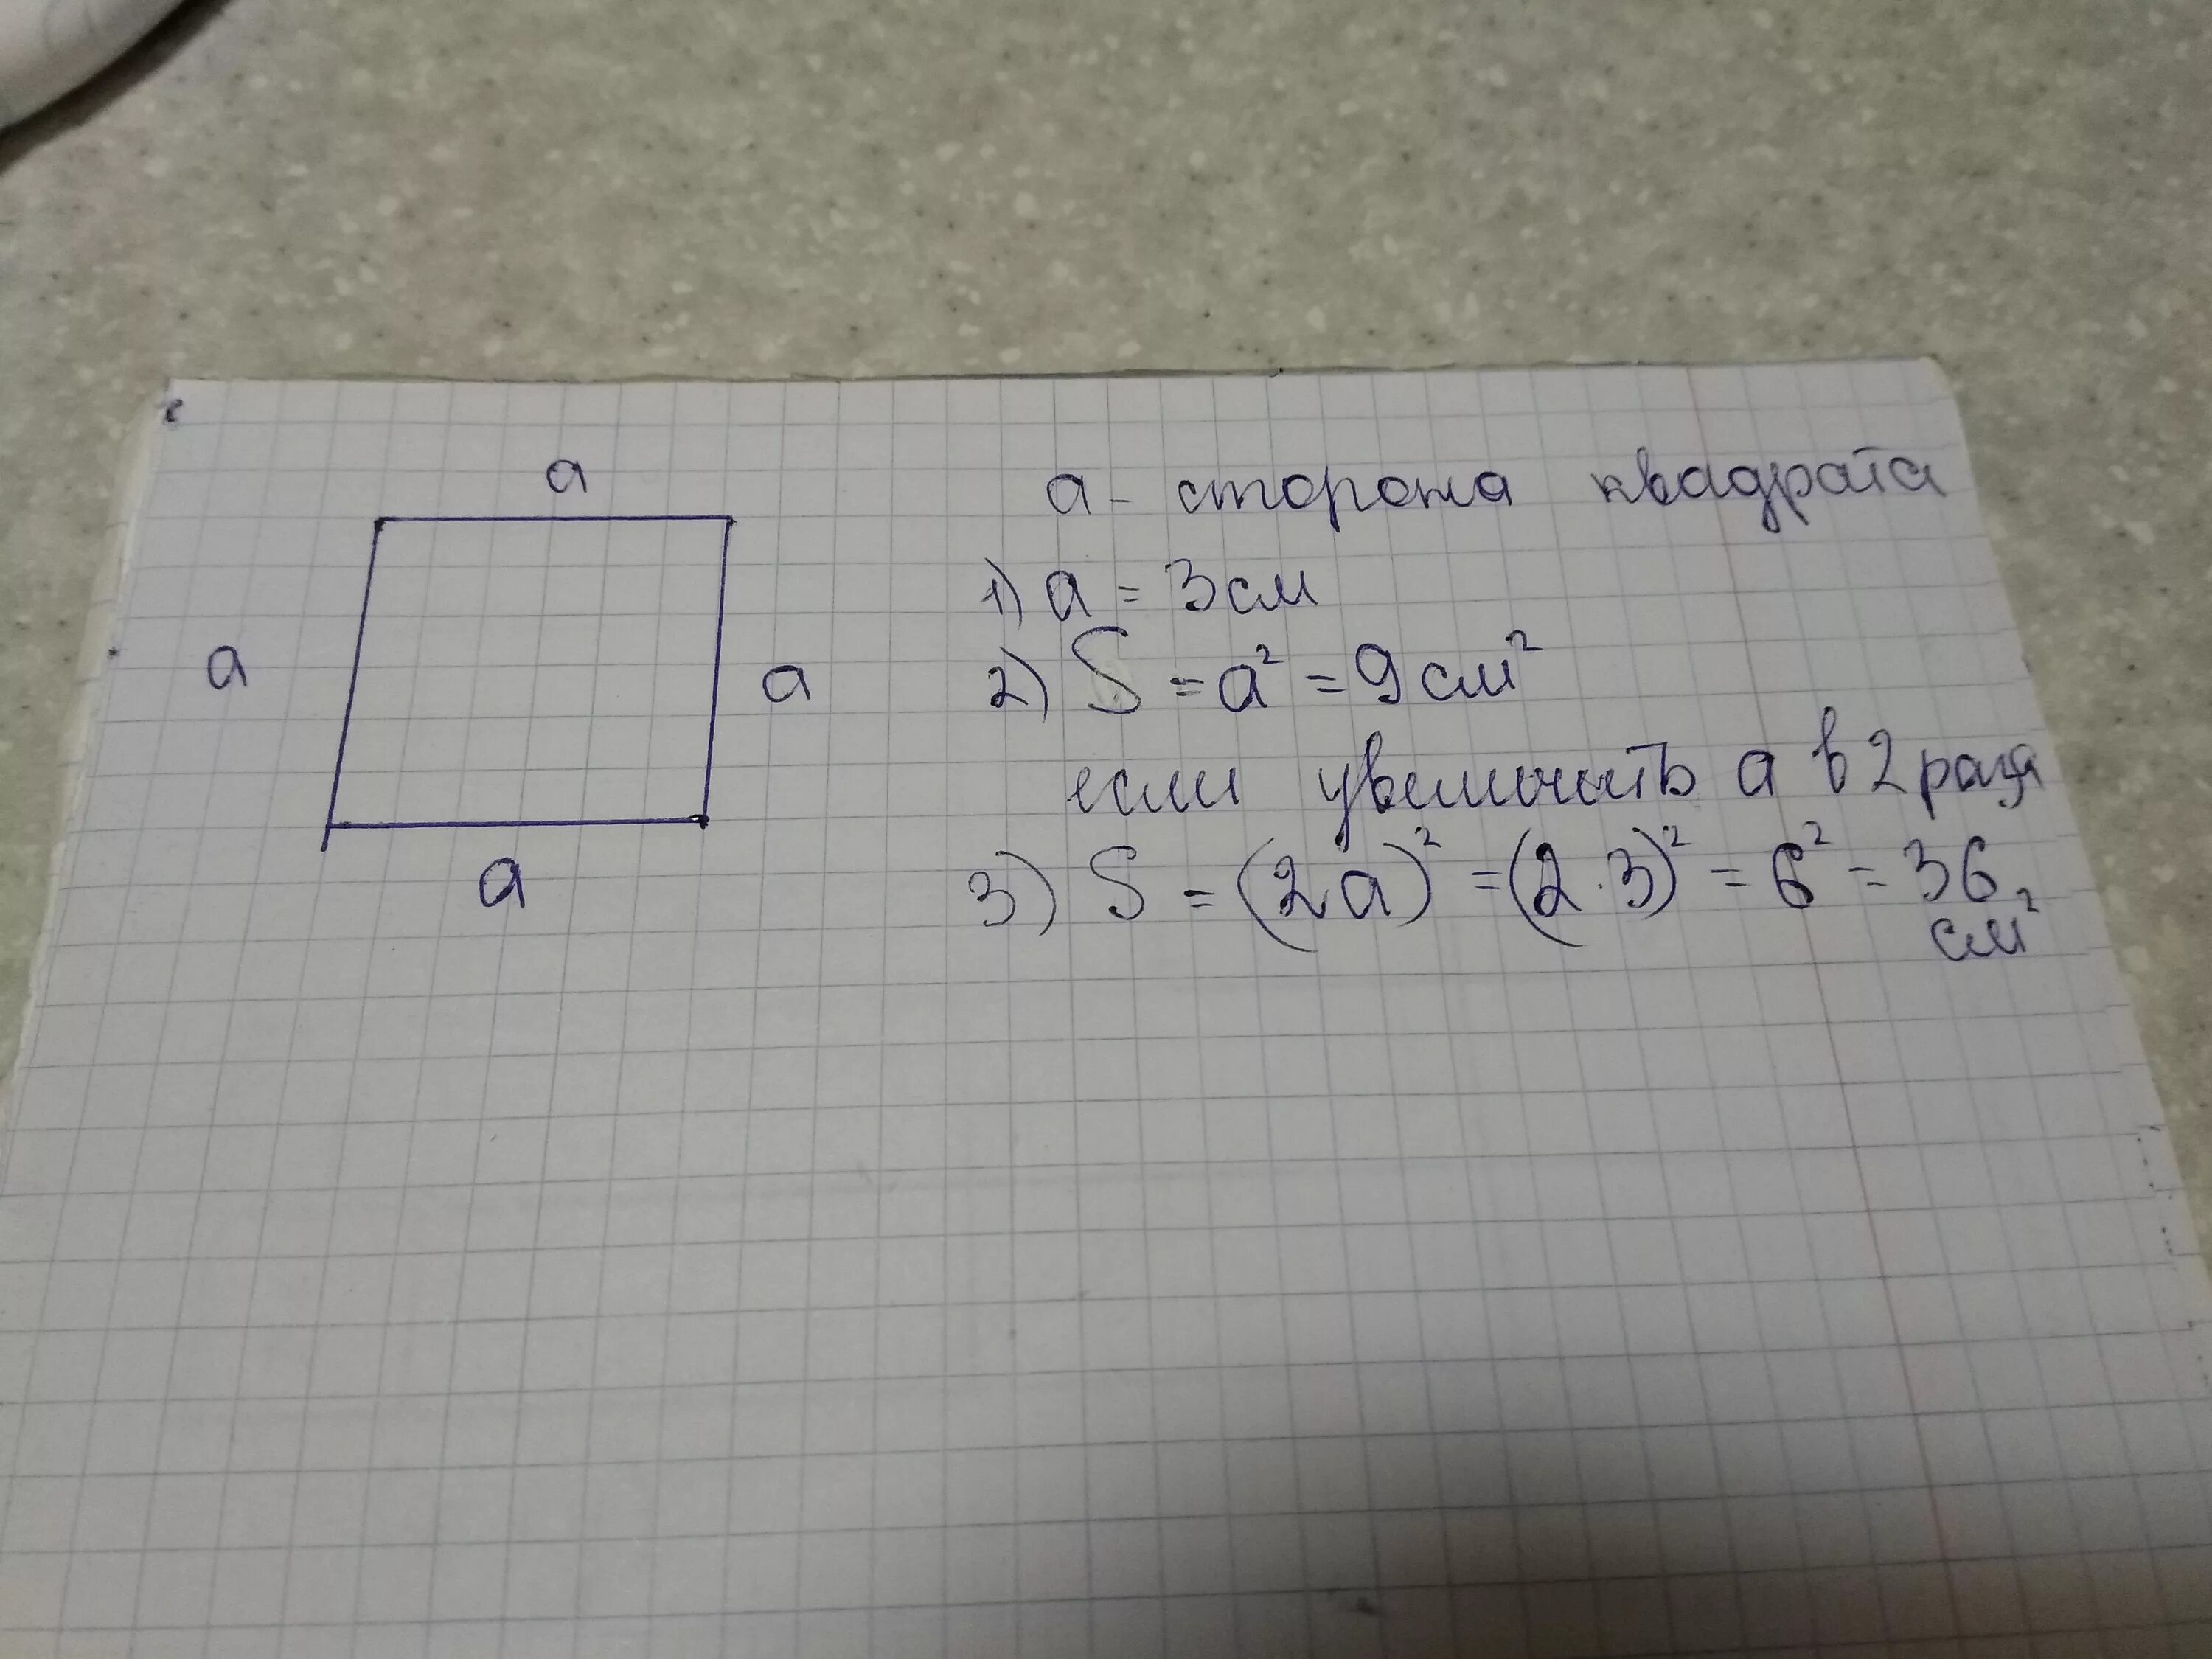 a
a
a
a
a - сторона квадрата
1) a = 3 см
2) S = a² = 9 см²
если увеличить a в 2 раза
3) S = (2a)² = (2·3)² = 6² = 36
см²